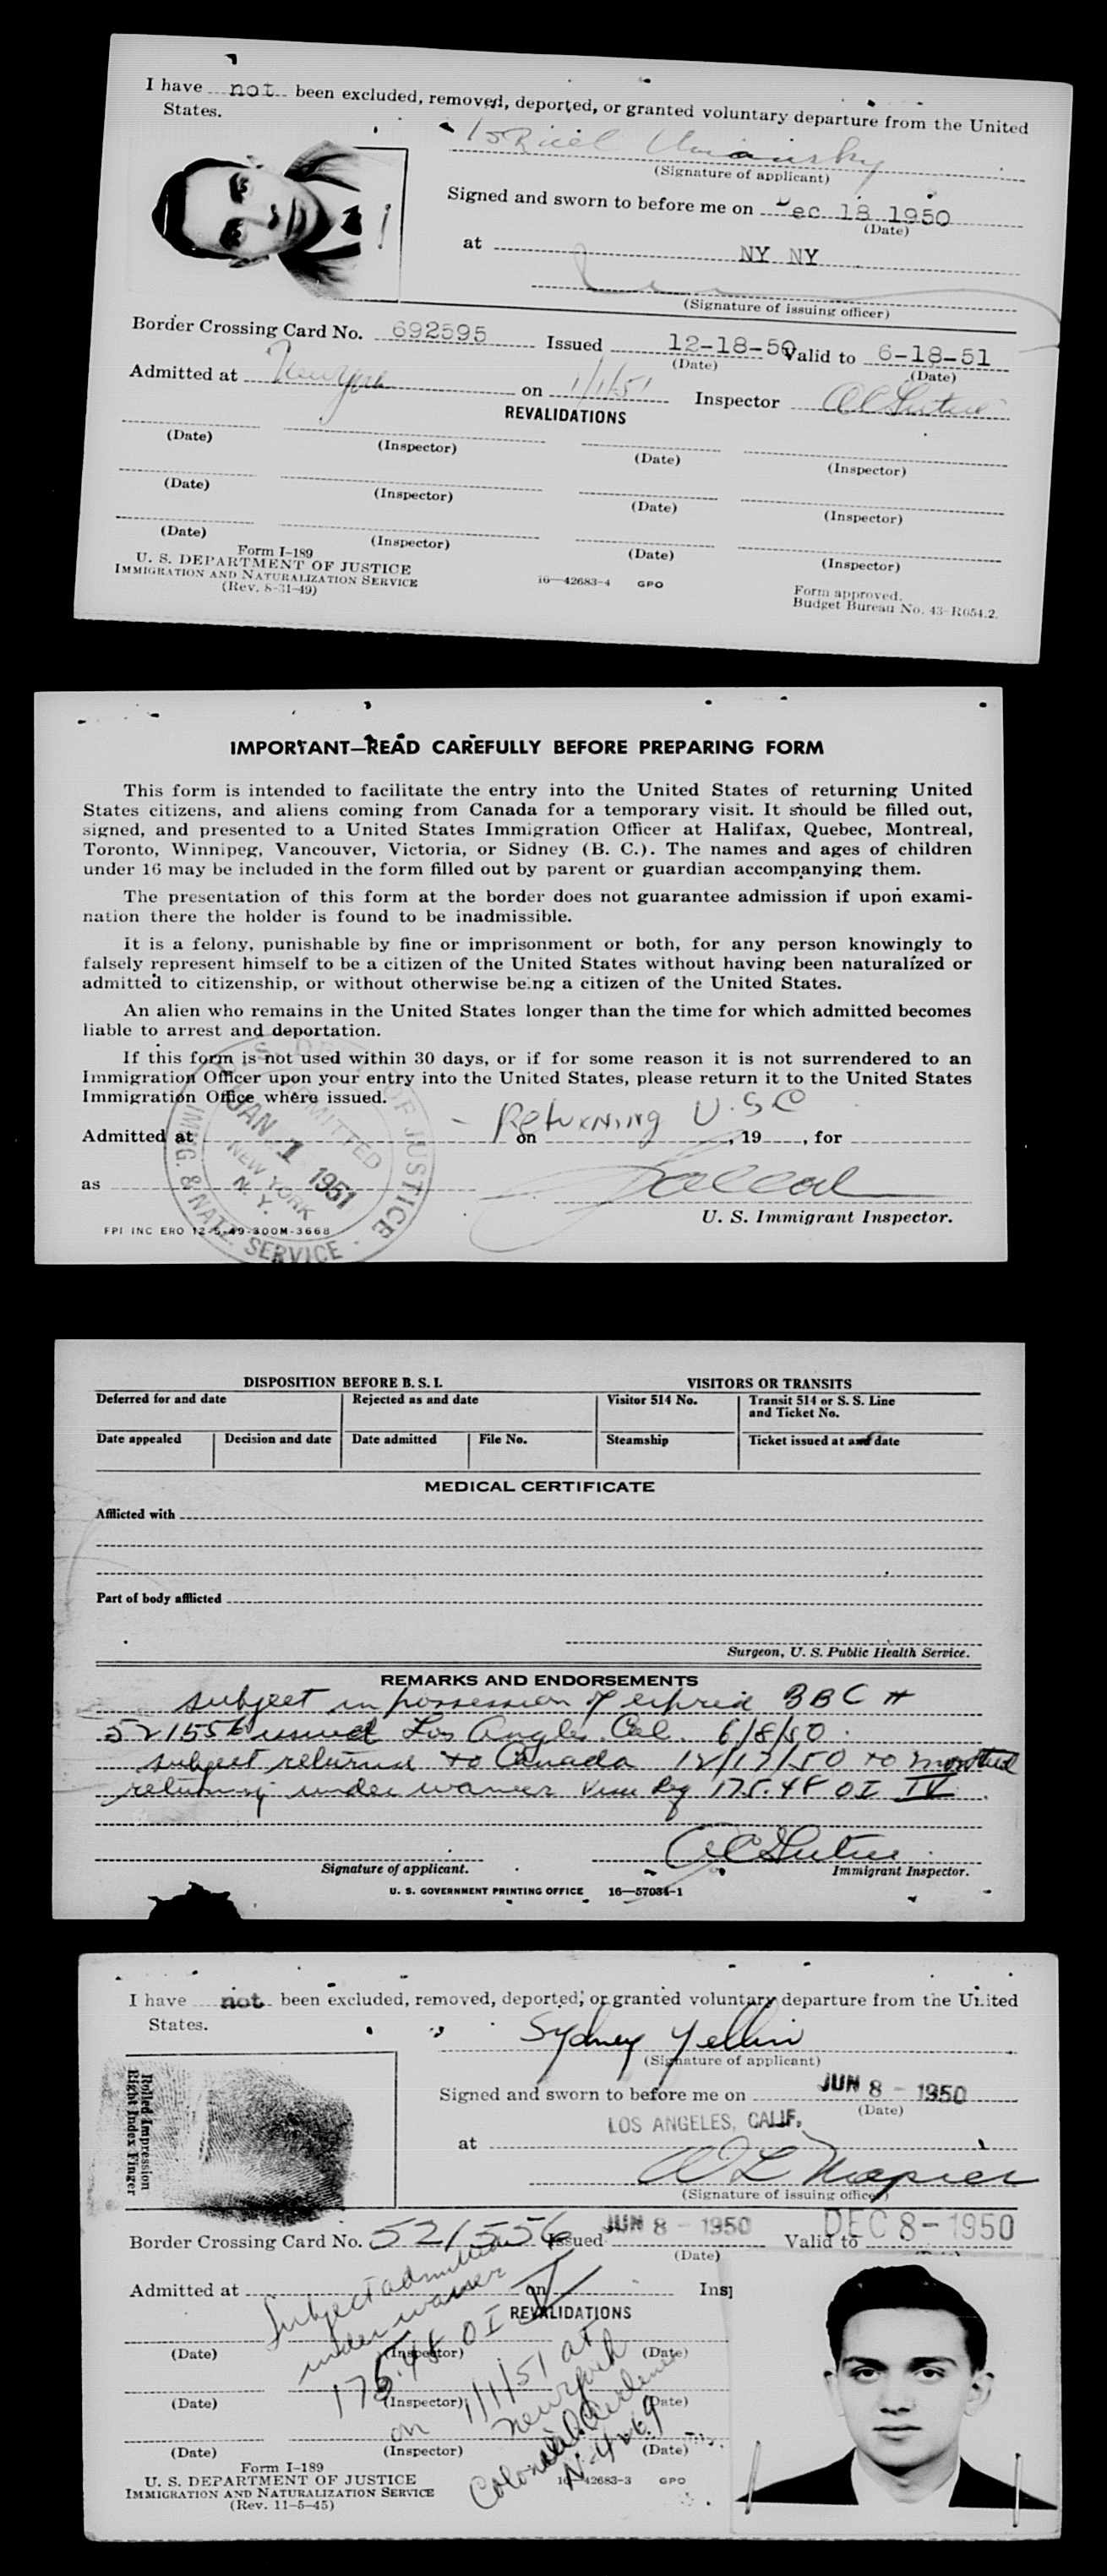 I have not been excluded, removed, deported, or granted voluntary departure from the United
States.
(Signature of applicant)
Signed and sworn to before me on Dec 18 1950
(Date)
at NY NY
(Signature of issuing officer)
Border Crossing Card No. 692595 Issued 12-18-50 Valid to 6-18-51
(Date) (Date)
Admitted at New York on 1/1/51 Inspector
REVALIDATIONS
(Date) (Inspector) (Date) (Inspector)
(Date) (Inspector) (Date) (Inspector)
(Date) (Inspector) (Date) (Inspector)
Form I-189
U. S. DEPARTMENT OF JUSTICE
IMMIGRATION AND NATURALIZATION SERVICE
(Rev. 8-31-49)
16—42683-4 GPO
Form approved.
Budget Bureau No. 43-R054.2.
IMPORTANT—READ CAREFULLY BEFORE PREPARING FORM
This form is intended to facilitate the entry into the United States of returning United
States citizens, and aliens coming from Canada for a temporary visit. It should be filled out,
signed, and presented to a United States Immigration Officer at Halifax, Quebec, Montreal,
Toronto, Winnipeg, Vancouver, Victoria, or Sidney (B. C.). The names and ages of children
under 16 may be included in the form filled out by parent or guardian accompanying them.
The presentation of this form at the border does not guarantee admission if upon exami-
nation there the holder is found to be inadmissible.
It is a felony, punishable by fine or imprisonment or both, for any person knowingly to
falsely represent himself to be a citizen of the United States without having been naturalized or
admitted to citizenship, or without otherwise being a citizen of the United States.
An alien who remains in the United States longer than the time for which admitted becomes
liable to arrest and deportation.
If this form is not used within 30 days, or if for some reason it is not surrendered to an
Immigration Officer upon your entry into the United States, please return it to the United States
Immigration Office where issued.
Returning U.S.C
Admitted at on , 19 , for
as
U. S. Immigrant Inspector.
FPI INC ERO 12-5-49-300M-3668
OF JUSTICE
IMMIG. & NATZ. SERVICE
ADMITTED
JAN 1 1951
NEW YORK
N. Y.
DISPOSITION BEFORE B. S. I. VISITORS OR TRANSITS
Deferred for and date Rejected as and date Visitor 514 No. Transit 514 or S. S. Line
and Ticket No.
Date appealed Decision and date Date admitted File No. Steamship Ticket issued at and date
MEDICAL CERTIFICATE
Afflicted with
Part of body afflicted
Surgeon, U. S. Public Health Service.
REMARKS AND ENDORSEMENTS
subject in possession of expired BBC #
521556 issued Los Angles. Cal. 6/8/50.
subject returned to Canada 12/17/50 to
returning under waiver 175.48 OI IV
Signature of applicant. Immigrant Inspector.
U. S. GOVERNMENT PRINTING OFFICE 16—57034-1
I have not been excluded, removed, deported, or granted voluntary departure from the United
States.
Sydney Yellin
(Signature of applicant)
Signed and sworn to before me on JUN 8 - 1950
(Date)
LOS ANGELES, CALIF.
at
W L Napier
(Signature of issuing officer)
Rolled Impression
Right Index Finger
Border Crossing Card No. 521556 Issued JUN 8 - 1950 Valid to DEC 8 - 1950
(Date)
Admitted at on Insp
REVALIDATIONS
(Date) (Inspector) (Date)
(Date) (Inspector) (Date)
(Date) (Inspector) (Date)
Subject admitted
under waiver
175.48 OI
on 1/1/51 at
New York
Colonial Airlines
N-4269
Form I-189
U. S. DEPARTMENT OF JUSTICE
IMMIGRATION AND NATURALIZATION SERVICE
(Rev. 11-5-45)
16—42683-3 GPO